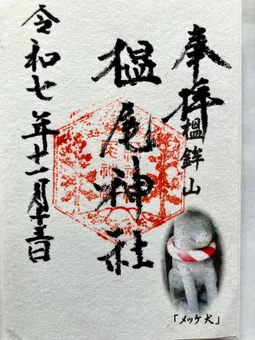 奉拝
榲鉾山
榲尾神社
令和七年十一月十三日
「メッケ犬」